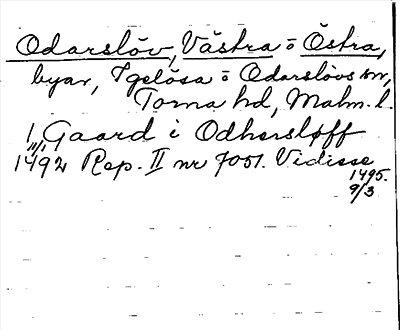 Odarslöv, Västra o Östra,
byar, Igelösa o Odarslövs snr,
Torna hd, Malm. l.
1 Gaard i Odhersløff
11/1 1492 Rep. II nr 7051. Vidisse
1495.
9/3